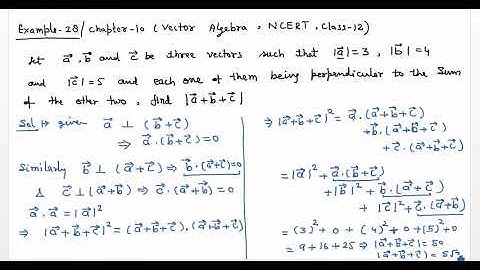 Example-28/ chapter-10 ( Vector Algebra, NCERT, class-12)
Let a⃗, b⃗ and c⃗ be three vectors such that |a⃗|=3, |b⃗|=4
and |c⃗|=5 and each one of them being perpendicular to the sum
of the other two, find |a⃗+b⃗+c⃗|
Sol given a⃗ ⊥ (b⃗+c⃗)
⇒ a⃗.(b⃗+c⃗)=0
Similarly b⃗ ⊥ (a⃗+c⃗) ⇒ b⃗.(a⃗+c⃗)=0
⊥ c⃗ ⊥(a⃗+b⃗) ⇒ c⃗.(a⃗+b⃗) = 0
a⃗.a⃗ = |a⃗|²
⇒ |a⃗+b⃗+c⃗|² = (a⃗+b⃗+c⃗).(a⃗+b⃗+c⃗)
⇒ |a⃗+b⃗+c⃗|² = a⃗.(a⃗+b⃗+c⃗)
+b⃗.(a⃗+b⃗+c⃗)
+ c⃗.(a⃗+b⃗+c⃗)
= |a⃗|² + a⃗.(b⃗+c⃗)
+|b⃗|² + b⃗.(a⃗+c⃗)
+ |c⃗|² + c⃗.(a⃗+b⃗)
= (3)² + 0 + (4)² + 0 + (5)² + 0
= 9+16+25 ⇒ |a⃗+b⃗+c⃗|² = 50
|a⃗+b⃗+c⃗| = 5√2